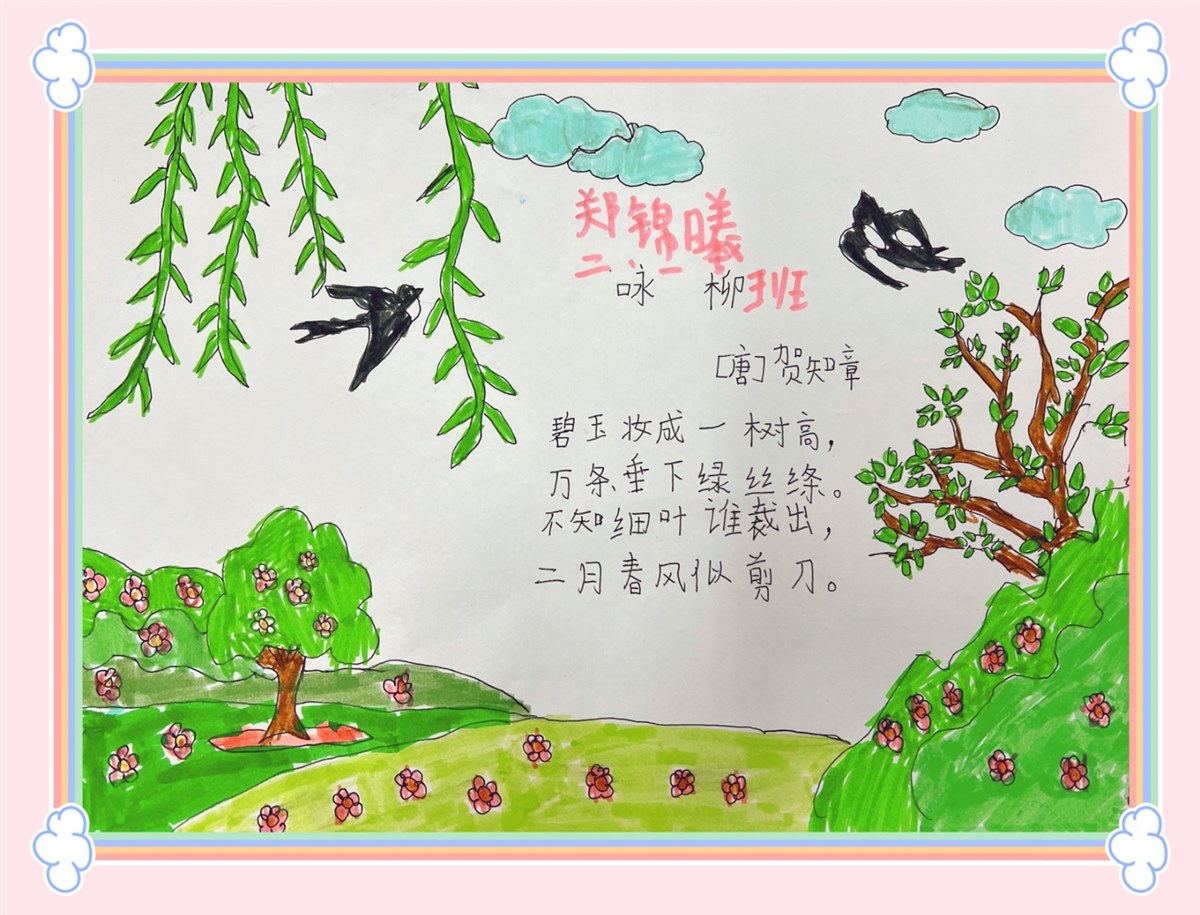 郑锦曦
二.一班
咏 柳
[唐]贺知章
碧玉妆成一树高，
万条垂下绿丝绦。
不知细叶谁裁出，
二月春风似剪刀。